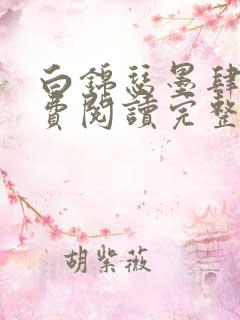 白錦瑟墨肆
費閱讀完整
胡紫薇